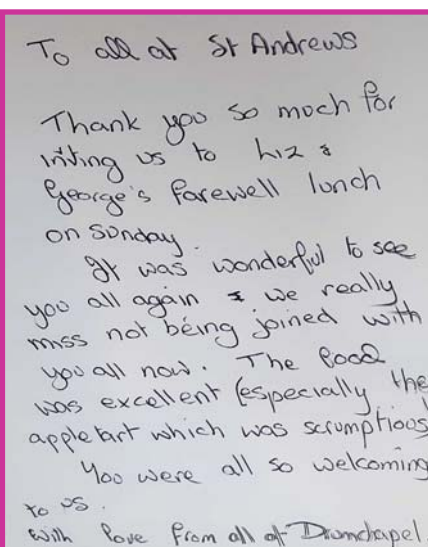 To all at St Andrews
Thank you so much for
inviting us to Liz &
George's farewell lunch
on Sunday.
It was wonderful to see
you all again & we really
miss not being joined with
you all now. The food
was excellent (especially the
appletart which was scrumptious
You were all so welcoming
to us.
With love from all at Drumchapel.